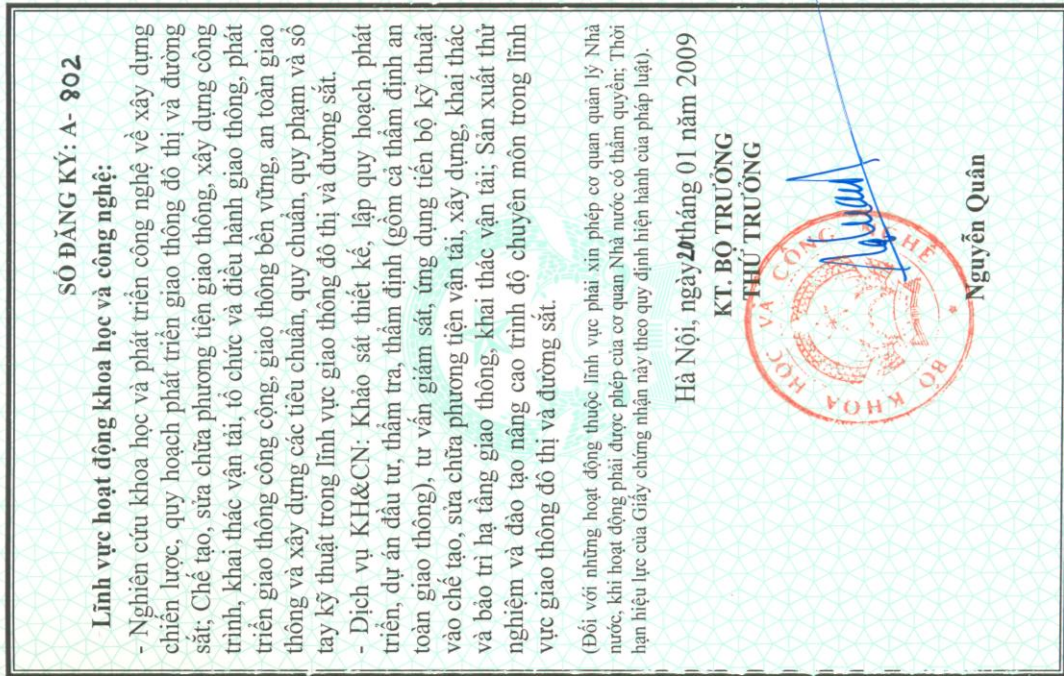 SỐ ĐĂNG KÝ: A- 802
Lĩnh vực hoạt động khoa học và công nghệ:
- Nghiên cứu khoa học và phát triển công nghệ về xây dựng
chiến lược, quy hoạch phát triển giao thông đô thị và đường
sắt; Chế tạo, sửa chữa phương tiện giao thông, xây dựng công
trình, khai thác vận tải, tổ chức và điều hành giao thông, phát
triển giao thông công cộng, giao thông bền vững, an toàn giao
thông và xây dựng các tiêu chuẩn, quy chuẩn, quy phạm và sổ
tay kỹ thuật trong lĩnh vực giao thông đô thị và đường sắt.
- Dịch vụ KH&CN: Khảo sát thiết kế, lập quy hoạch phát
triển, dự án đầu tư, thẩm tra, thẩm định (gồm cả thẩm định an
toàn giao thông), tư vấn giám sát, ứng dụng tiến bộ kỹ thuật
vào chế tạo, sửa chữa phương tiện vận tải, xây dựng, khai thác
và bảo trì hạ tầng giao thông, khai thác vận tải; Sản xuất thử
nghiệm và đào tạo nâng cao trình độ chuyên môn trong lĩnh
vực giao thông đô thị và đường sắt.
(Đối với những hoạt động thuộc lĩnh vực phải xin phép cơ quan quản lý Nhà
nước, khi hoạt động phải được phép của cơ quan Nhà nước có thẩm quyền; Thời
hạn hiệu lực của Giấy chứng nhận này theo quy định hiện hành của pháp luật).
Hà Nội, ngày 20 tháng 01 năm 2009
KT. BỘ TRƯỞNG
THỨ TRƯỞNG
BỘ KHOA HỌC VÀ CÔNG NGHỆ
Nguyễn Quân